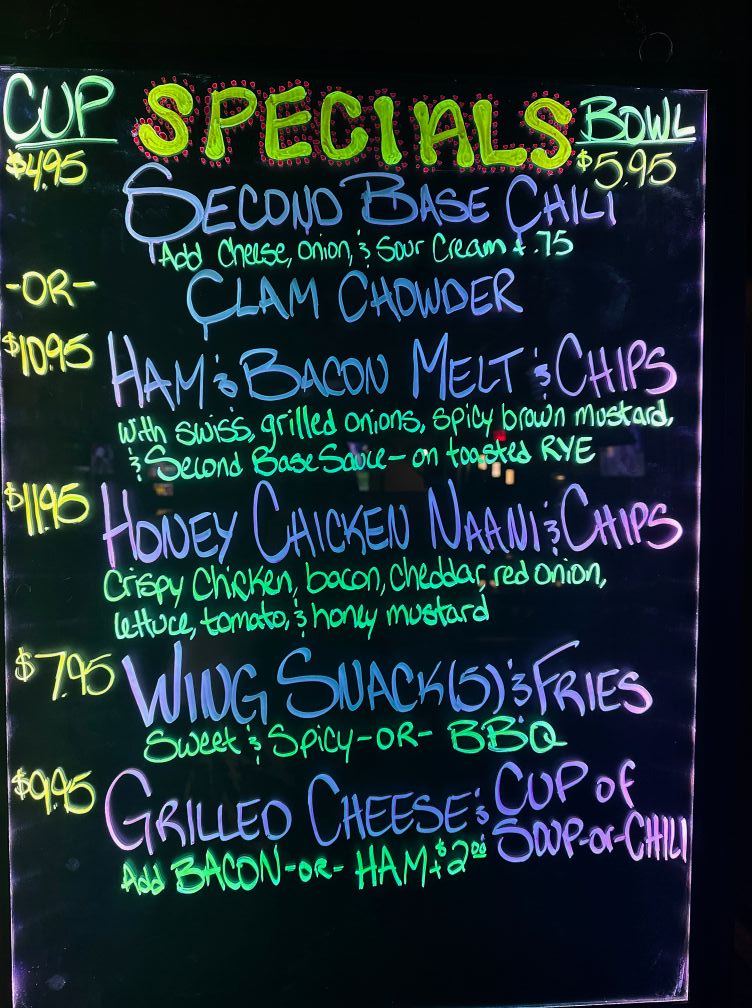 CUP SPECIALS BOWL
$4.95 $5.95
SECOND BASE CHILI
Add Cheese, onion, & Sour Cream + .75
-OR- CLAM CHOWDER
$10.95 HAM & BACON MELT & CHIPS
with swiss, grilled onions, spicy brown mustard,
& Second Base Sauce - on toasted RYE
$11.95 HONEY CHICKEN NAANI & CHIPS
Crispy Chicken, bacon, cheddar, red onion,
lettuce, tomato, & honey mustard
$7.95 WING SNACK (5) & FRIES
Sweet & Spicy -OR- BBQ
$9.95 GRILLED CHEESE & CUP OF
SOUP-or-CHILI
Add BACON -OR- HAM + $2.00